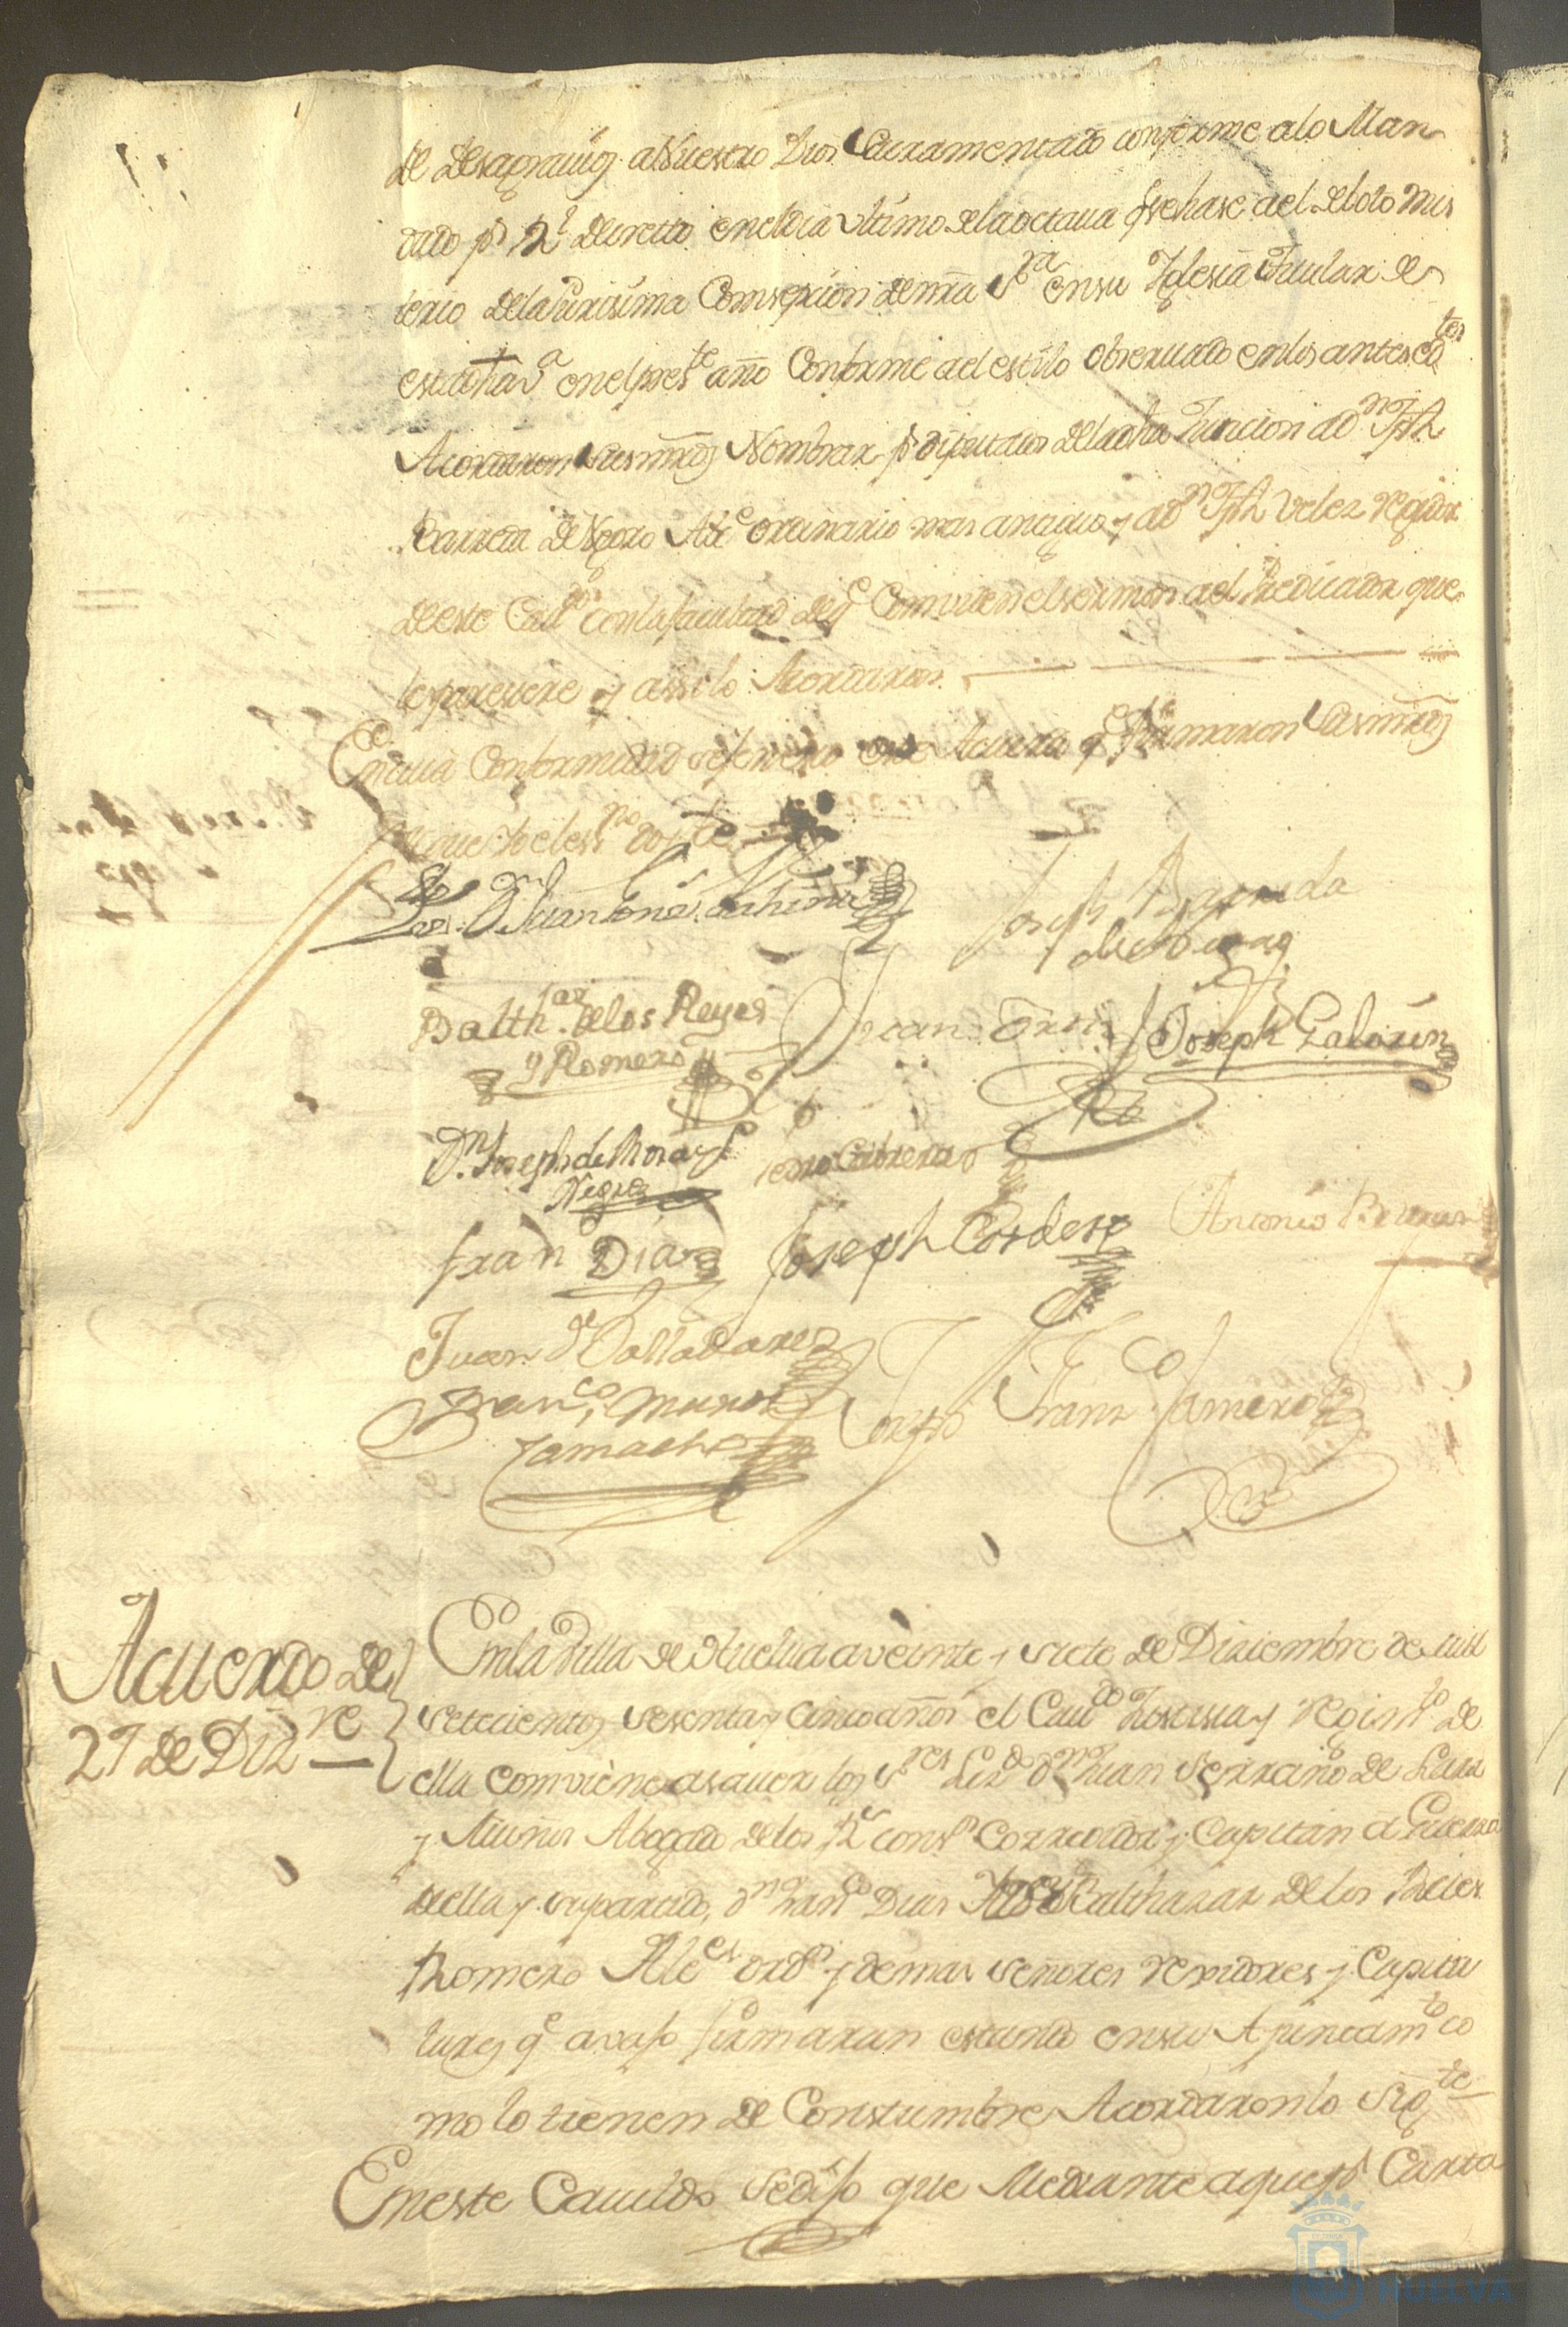 de desagravios a Nuestro Dios Sacramentado conforme a lo Man
dado pr Rl decretto en el dia ultimo de la octava q se hase a el deboto mis
terio de la Purisima Consepcion de nra Sra en su Yglesia titular de
esta dha va en el preste año Conforme a el estilo obseruado en los antesedtes
Acordaron sus mrds Nombrar pr diputados de la dha Funcion a Dn Jph
Barreda de Ale ordinario mas antiguo y a Dn Jph Velez regidor
de este Cavdo con la facultad de q Comviden el sermon a el Predicador que
les paresiere y assi lo Acordaron
En cuia Conformidad se fenesio este Acuerdo q firmaron sus mrds
de que Yo el essno doy fe
Joseph Barreda
Balthar de los Reyes
y Romero
Juan
Joseph Galaein
Dn Joseph de Mora y
Negro
Pedro Cabrera
Fran Diaz
Joseph Cordero
Antonio
Juan de Valladares
Franco Munos
Camacho
Franco Romero
Acuerdo de
27 de Dizre
En la Villa de Huelva a veinte y siete de Diziembre de mill
setecientos sesenta y cinco años el Cavdo Justisia y regimto de
ella comviene a saver los Sres Lizdo Dn Juan Serrano de Lara
y Muños Abogado de los Rs consos Corregidor y Capitan a Guerra
de ella y su partido, Dn Franco Dias y Balthazar de los Reies
Romero Alces ordos y demas señores rexidores y Capitu
lares q avajo firmaran estando en su Ajuntamto co
mo lo tienen de Constumbre Acordaron lo sigte
En este Cavildo se dijo que Mediante a que pr Carta
HUELVA